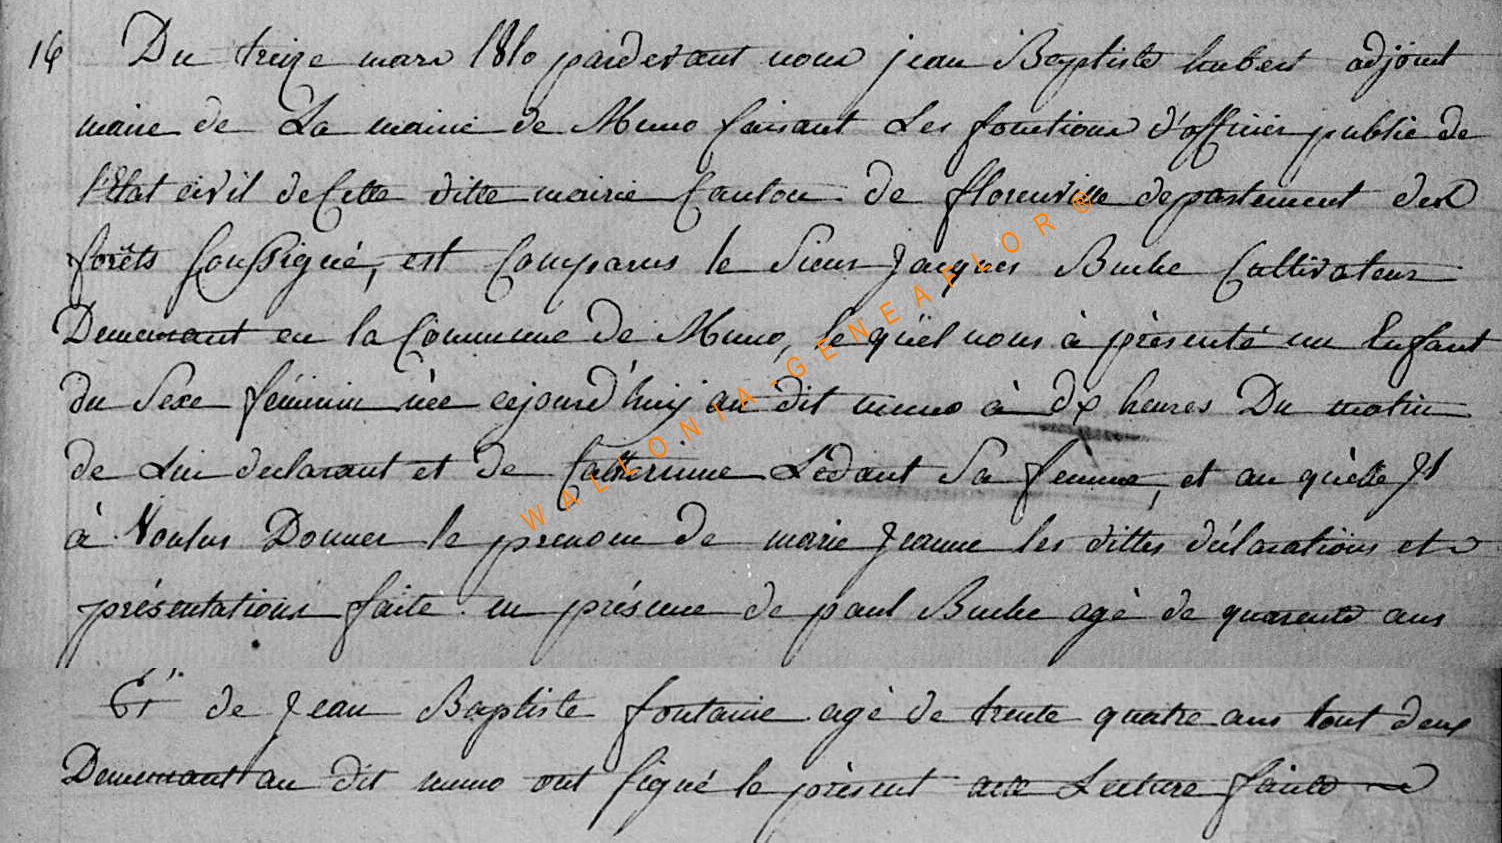 16 Du treize mars 1810 pardevant nous jean Baptiste hubert adjoint
maire de La mairie de Muno faisant Les fonctions d'officier public de
l'Etat civil de Cette ditte mairie Canton de florenville departement des
forêts soussigné, est Comparus le Sieur Jacques Buche Cultivateur
Demeurant en la Commune de Muno, le quel nous à présenté un Enfant
du Sexe féminin née cejourd'huij au dit muno à dix heures Du matin
de Lui declarant et de Catherinne Ledant Sa femme, et au quelle Jl
à Voulus Donner le prenom de marie Jeanne les dittes déclarations et
présentations faite en présence de paul Buche agé de quarente ans
Et de Jean Baptiste fontaine agé de trente quatre ans tout deux
Demeurant au dit muno ont signé le présent acte Lecture faite
WALLONIA-GENEAFLOR®